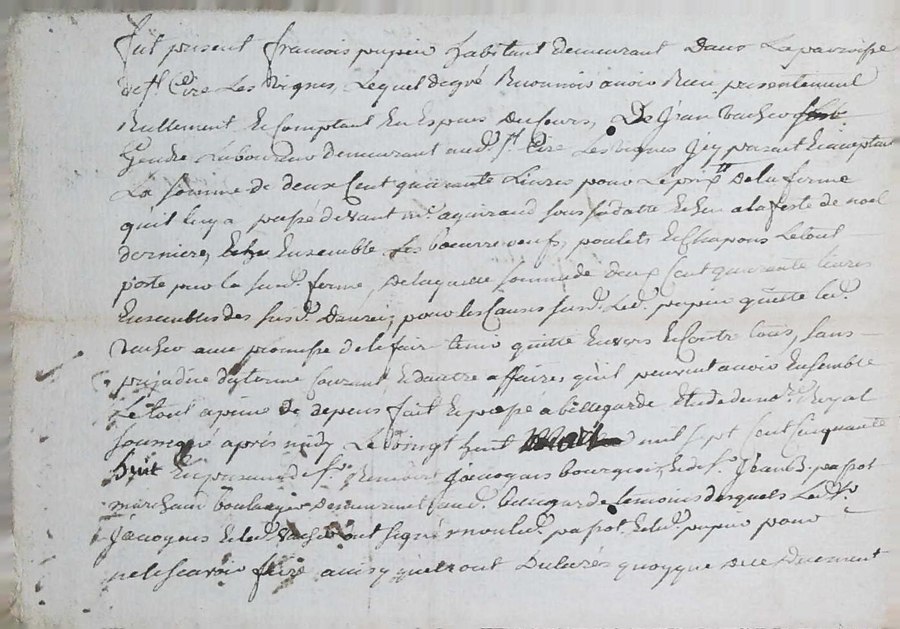 fut present francois pupier habitant demeurant dans la parroisse
de st Cire Les Vignes, Lequel de gré a reconnu avoir Receu presentement
Reellement et Comptant En Espèces du Cours, De Jean Vacher
Gendre demeurant aud. st Cire Les Vignes Jcy present et acceptant
La somme de deux Cent quarante Livres pour Le prix De la ferme
qu'il luy a passé devant me aguiraud sous sa datte Echu a la feste de noel
derniere, Ensemble Les boeurre oeufs, poulets et Chapons Le tout
porté par la susd. ferme, De laquelle somme de deux Cent quarante livres
Ensembles des susd. Danrées, pour les Causes susd. Led. pupier quitte led.
Vacher avec promesse de le fair tenir quitte Envers et Contre tous, sans
prejudice du terme Courant et d'autre affaires qu'il peuvent avoir Ensemble
Le tout a peine de depens fait et passé a bellegarde Etude du no.re Royal
soussigné après midy Le vingt huit mil sept cent Cinquante
huit En presence de sr Jacoyons bourgeois, et de sr Jean B. passot
marchand boulanger demeurant aud. bellegarde temoins desquels Led. sr
Jacoyons et led. Vacher ont signé non led. passot et led. pupier pour
ne scavoir faire ainsy qu'il ont Declarés quoyque de ce Duement